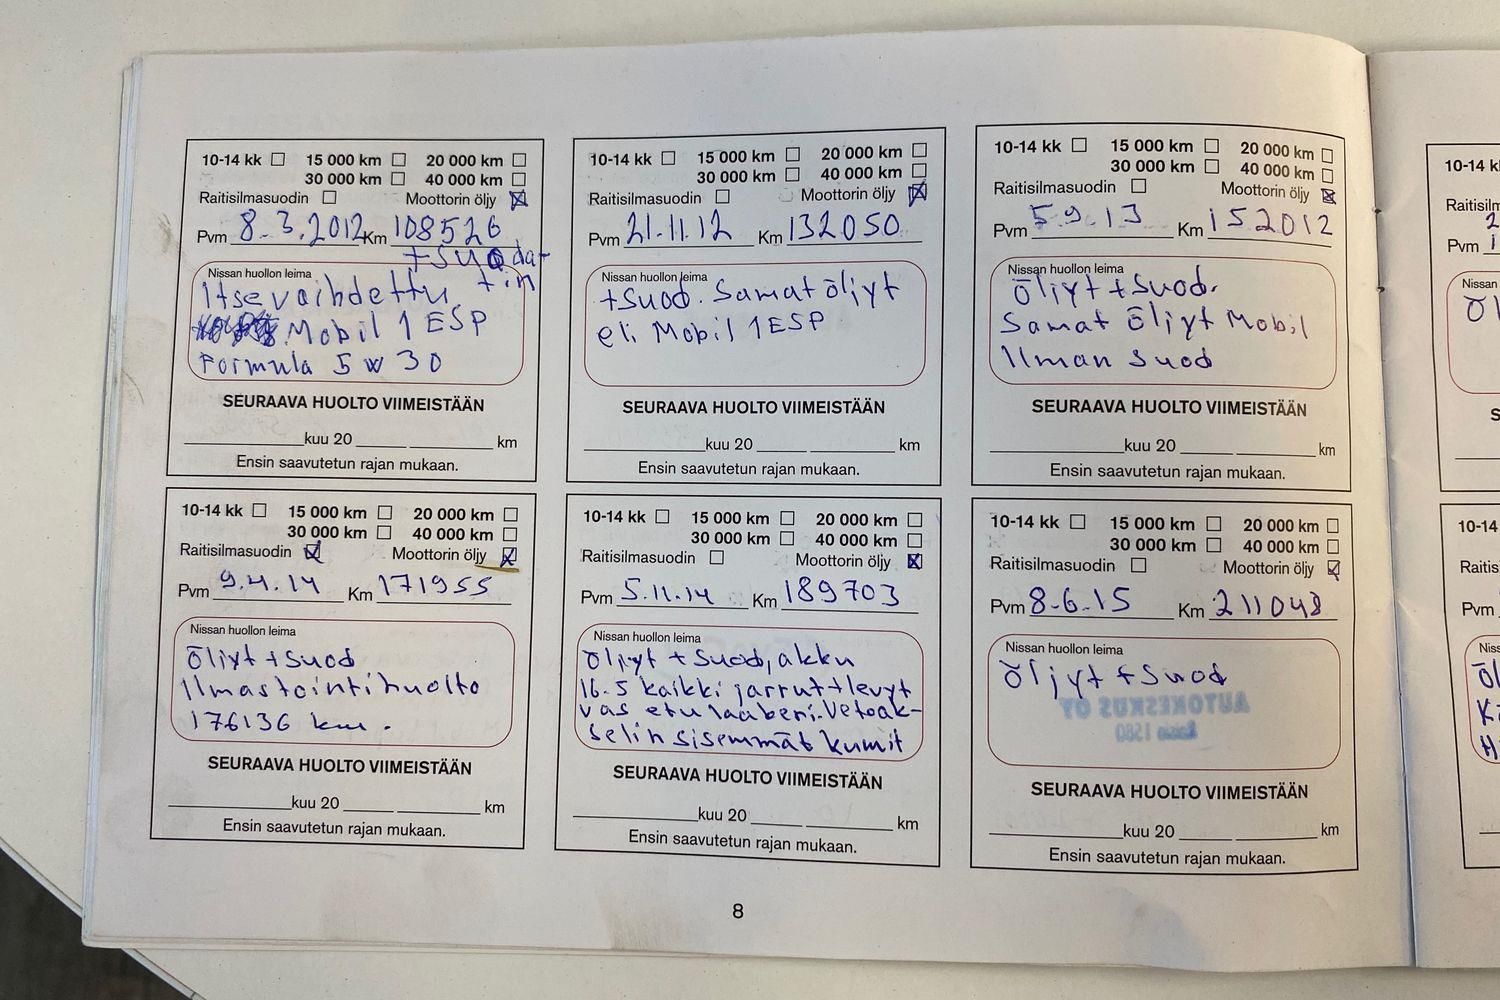 10-14 kk 15 000 km 20 000 km
30 000 km 40 000 km
Raitisilmasuodin Moottorin öljy
Pvm 8.3.2012 Km 108526
+suoda-
Nissan huollon leima
Itse vaihdettu tin
Mobil 1 ESP
Formula 5w30
SEURAAVA HUOLTO VIIMEISTÄÄN
kuu 20 km
Ensin saavutetun rajan mukaan.
10-14 kk 15 000 km 20 000 km
30 000 km 40 000 km
Raitisilmasuodin Moottorin öljy
Pvm 21.11.12 Km 132050
Nissan huollon leima
+suod. Samat öljyt
eli Mobil 1 ESP
SEURAAVA HUOLTO VIIMEISTÄÄN
kuu 20 km
Ensin saavutetun rajan mukaan.
10-14 kk 15 000 km 20 000 km
30 000 km 40 000 km
Raitisilmasuodin Moottorin öljy
Pvm 5.9.13 Km 152012
Nissan huollon leima
Öljyt + suod.
Samat öljyt Mobil
Ilman suod
SEURAAVA HUOLTO VIIMEISTÄÄN
kuu 20 km
Ensin saavutetun rajan mukaan.
10-14 kk 15 000 km 20 000 km
30 000 km 40 000 km
Raitisilmasuodin Moottorin öljy
Pvm 9.4.14 Km 171955
Nissan huollon leima
Öljyt + suod
Ilmastointihuolto
176136 km.
SEURAAVA HUOLTO VIIMEISTÄÄN
kuu 20 km
Ensin saavutetun rajan mukaan.
10-14 kk 15 000 km 20 000 km
30 000 km 40 000 km
Raitisilmasuodin Moottorin öljy
Pvm 5.11.14 Km 189703
Nissan huollon leima
Öljyt + suod, akku
16.5 kaikki jarrut+levyt
vas etulaakeri. Vetoak-
selin sisemmät kumit
SEURAAVA HUOLTO VIIMEISTÄÄN
kuu 20 km
Ensin saavutetun rajan mukaan.
10-14 kk 15 000 km 20 000 km
30 000 km 40 000 km
Raitisilmasuodin Moottorin öljy
Pvm 8.6.15 Km 211048
Nissan huollon leima
Öljyt + suod
AUTOKESKUS OY
SEURAAVA HUOLTO VIIMEISTÄÄN
kuu 20 km
Ensin saavutetun rajan mukaan.
8
10-14
Pvm
Nissan
10-14
Raitis
Pvm